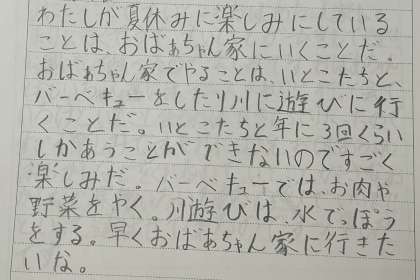 わたしが夏休みに楽しみにしている
ことは、おばあちゃん家にいくことだ。
おばあちゃん家でやることは、いとこたちと、
バーベキューをしたり川に遊びに行
くことだ。いとこたちと年に3回くらい
しかあうことができないのですごく
楽しみだ。バーベキューでは、お肉や
野菜をやく。川遊びは、水でっぽう
をする。早くおばあちゃん家に行きた
いな。